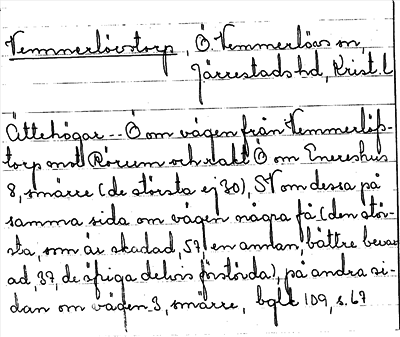 Vemmerlövstorp, Ö. Vemmerlövs sn,
Järrestads hd, Krist. l
Ättehögar -- Ö om vägen från Vemmerlöfs-
torp mot Rörum och rakt Ö om Enereshus
8, smärre (de största ej 30), SV om dessa på
samma sida om vägen några få (den stör-
sta, som är skadad, 57, en annan, bättre bevar
ad, 37, de öfriga delvis förstörda), på andra si-
dan om vägen 3, smärre, bglt 109, s. 67